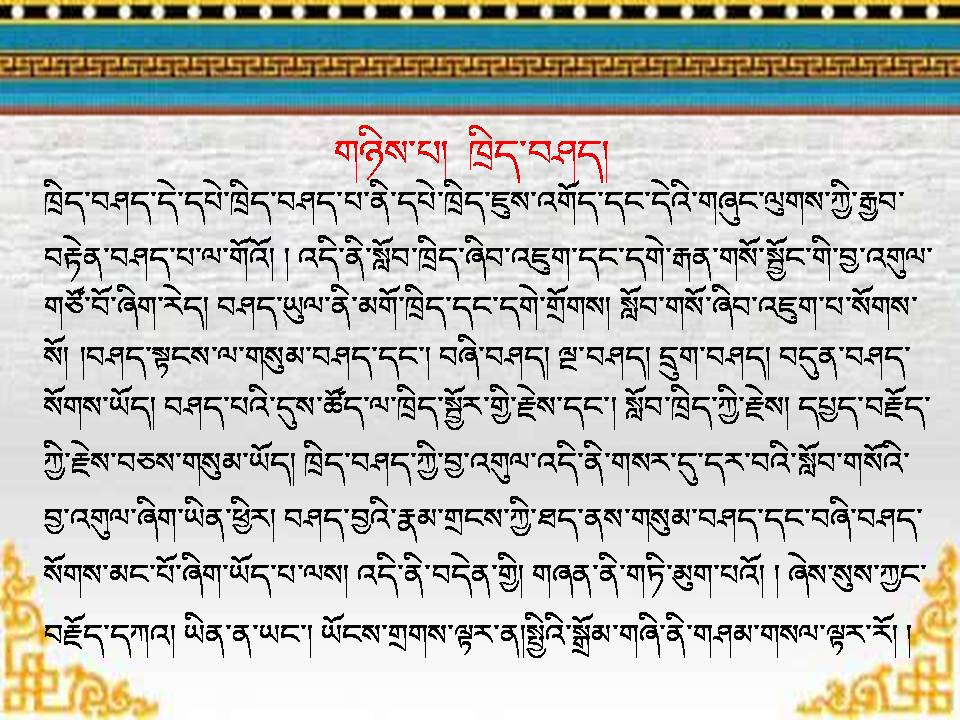 གཉིས་པ། ཁྲིད་བཤད།
ཁྲིད་བཤད་དེ་དཔེ་ཁྲིད་བཤད་པ་ནི་དཔེ་ཁྲིད་ཇུས་འགོད་དང་དེའི་གཞུང་ལུགས་ཀྱི་རྒྱབ་
བརྟེན་བཤད་པ་ལ་གོའོ། ། འདི་ནི་སློབ་ཁྲིད་ཞིབ་འཇུག་དང་དགེ་རྒན་གསོ་སྦྱོང་གི་བྱ་འགུལ་
གཙོ་བོ་ཞིག་རེད། བཤད་ཡུལ་ནི་མགོ་ཁྲིད་དང་དགེ་གྲོགས། སློབ་གསོ་ཞིབ་འཇུག་པ་སོགས་
སོ། །བཤད་སྟངས་ལ་གསུམ་བཤད་དང་། བཞི་བཤད། ལྔ་བཤད། དྲུག་བཤད། བདུན་བཤད་
སོགས་ཡོད། བཤད་པའི་དུས་ཚོད་ལ་ཁྲིད་སྦྱོར་གྱི་རྗེས་དང་། སློབ་ཁྲིད་ཀྱི་རྗེས། དཔྱད་བརྗོད་
ཀྱི་རྗེས་བཅས་གསུམ་ཡོད། ཁྲིད་བཤད་ཀྱི་བྱ་འགུལ་འདི་ནི་གསར་དུ་དར་བའི་སློབ་གསོའི་
བྱ་འགུལ་ཞིག་ཡིན་ཕྱིར། བཤད་བྱའི་རྣམ་གྲངས་ཀྱི་ཐད་ནས་གསུམ་བཤད་དང་བཞི་བཤད་
སོགས་མང་པོ་ཞིག་ཡོད་པ་ལས། འདི་ནི་བདེན་གྱི། གཞན་ནི་གཏི་མུག་པའོ། ། ཞེས་སུས་ཀྱང་
བརྗོད་དཀའ། ཡིན་ན་ཡང་། ཡོངས་གྲགས་ལྟར་ན།སྤྱིའི་སྒྲོམ་གཞི་ནི་གཤམ་གསལ་ལྟར་རོ། །